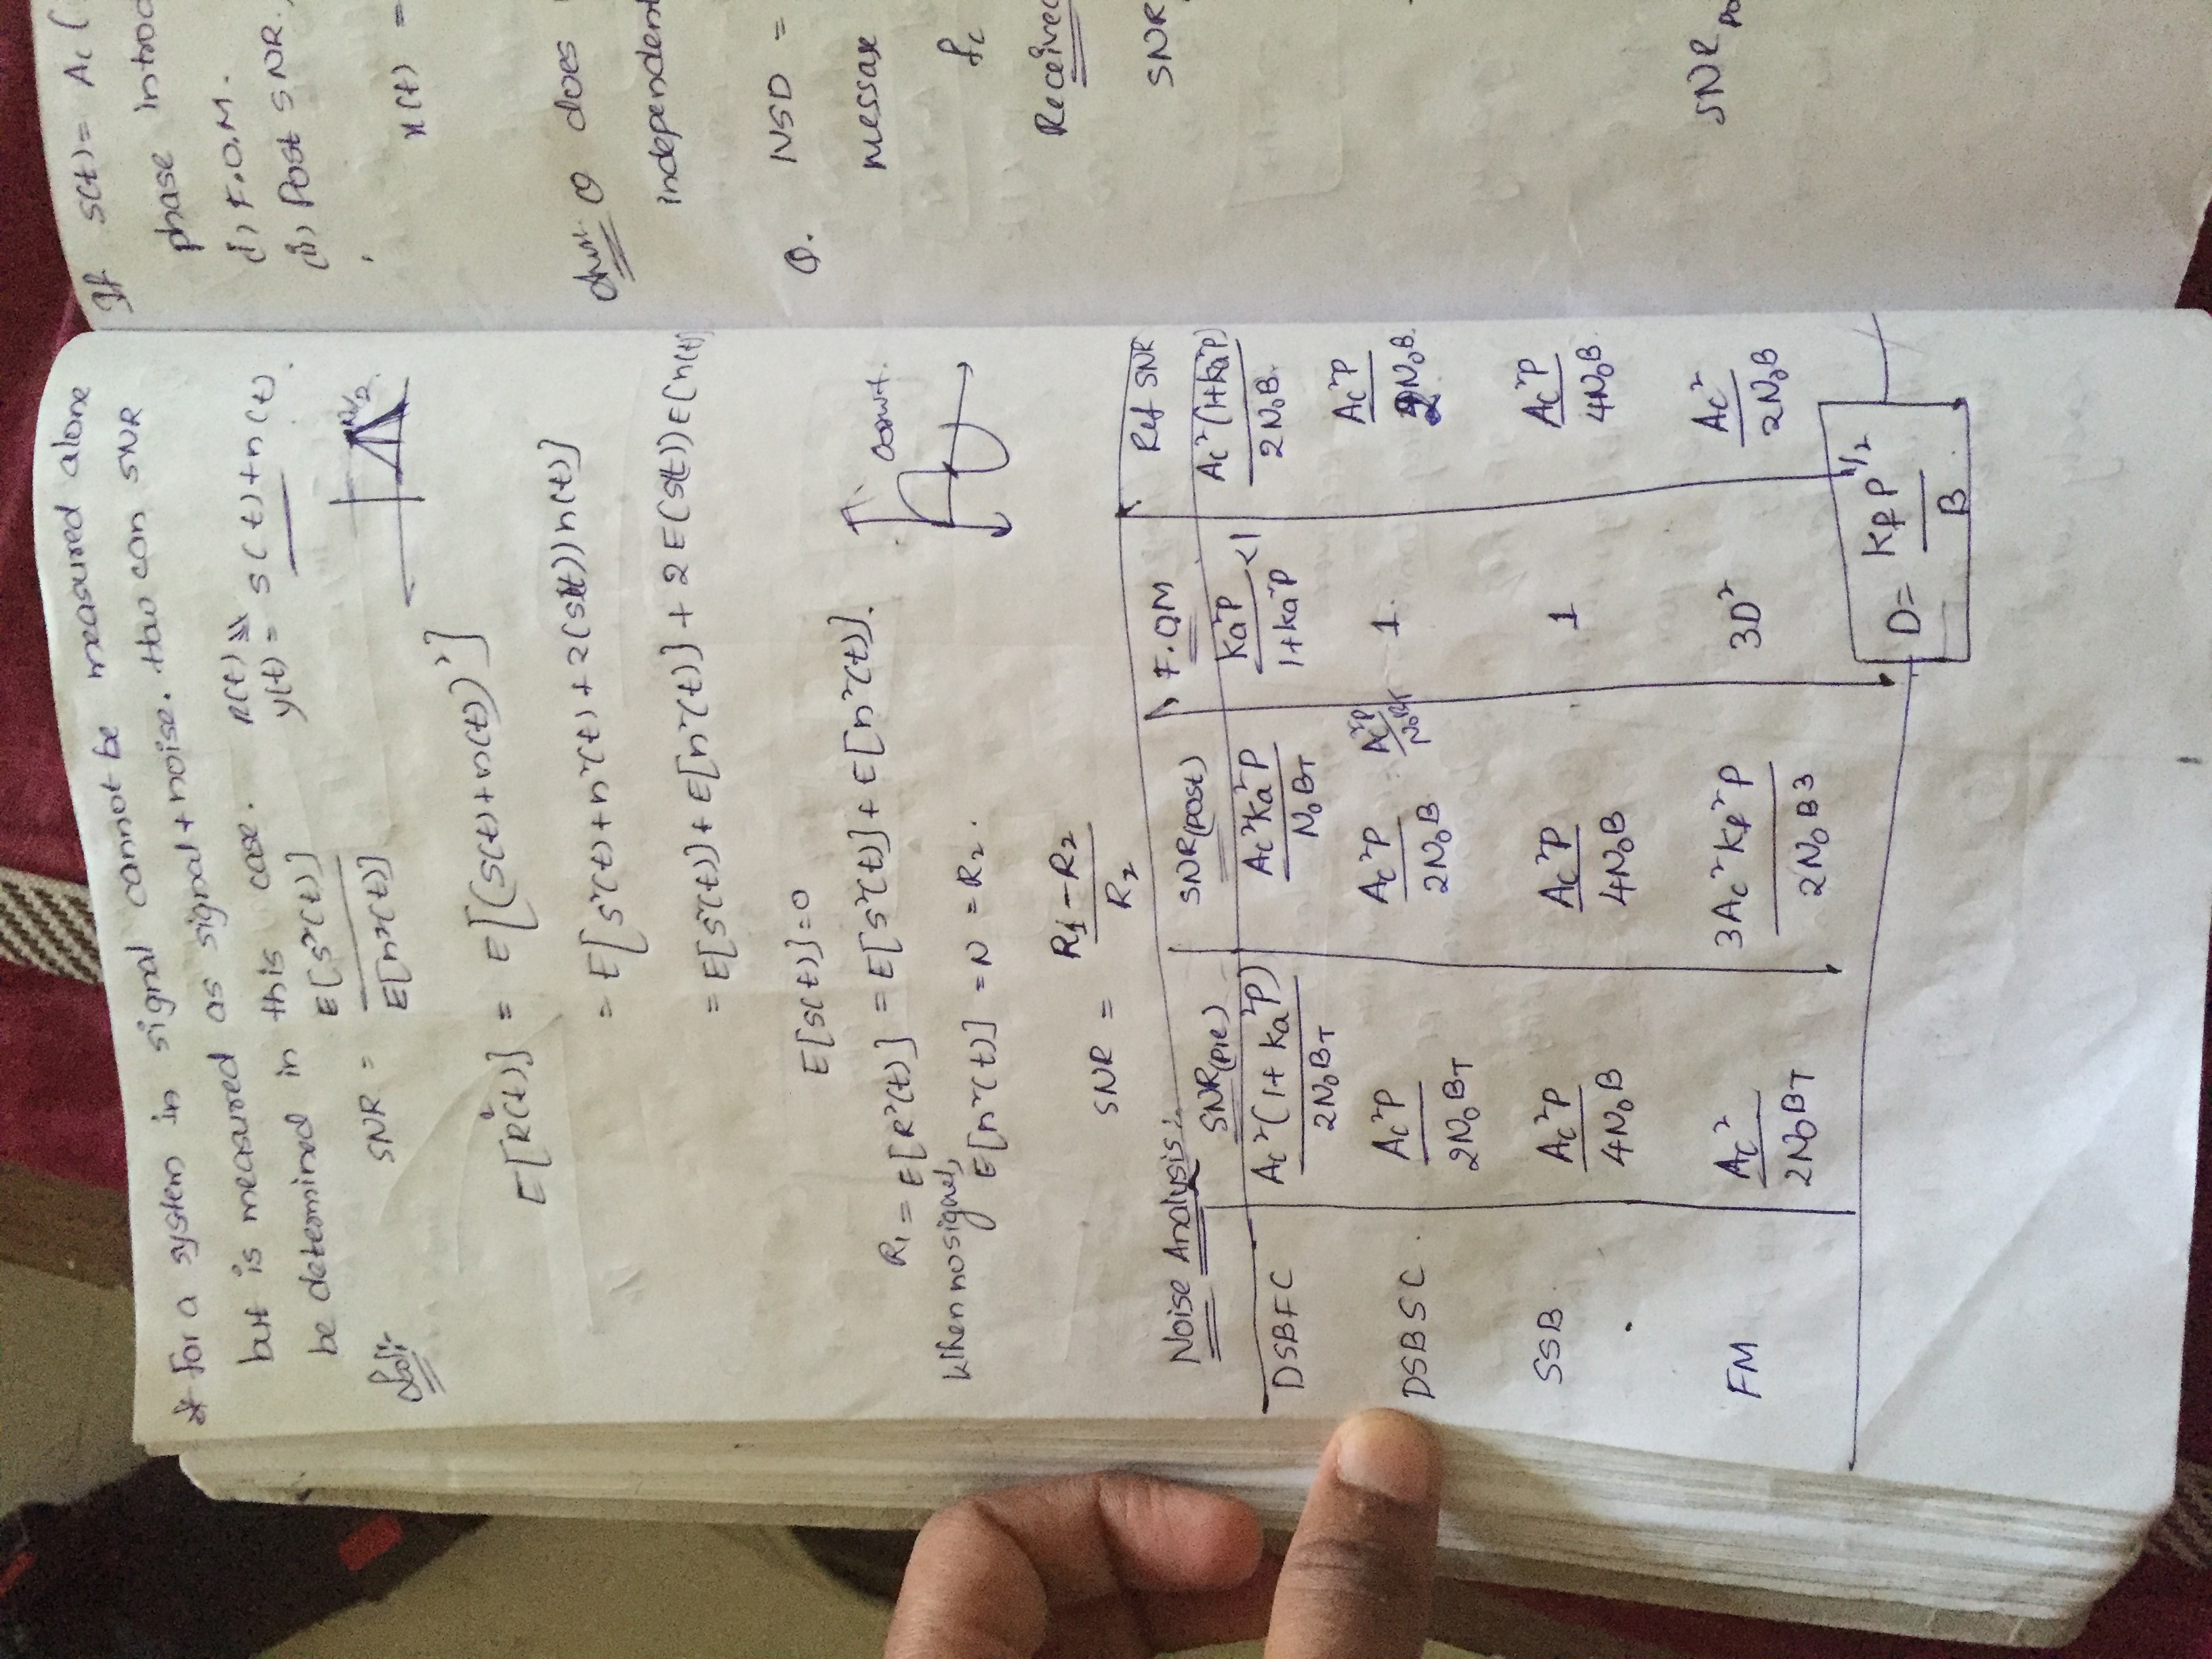 * For a system in signal cannot be measured alone
but is measured as signal + noise. How can SNR
be determined in this case.
R(t)
y(t) = s(t) + n(t)
Sol:-
SNR = E[s²(t)] / E[n²(t)]
N₀/2
E[R²(t)] = E[(s(t)+n(t))²]
= E[s²(t)+n²(t)+2(s(t))n(t)]
= E[s²(t)]+E[n²(t)]+2E(s(t))E(n(t)
E[s(t)]=0
R₁ = E[R²(t)] = E[s²(t)]+E[n²(t)].
coswt.
When no signal,
E[n²(t)] = N = R₂.
SNR = (R₁-R₂) / R₂
Noise Analysis:
SNR(pre) SNR(post) F.O.M Ref SNR
DSBFC Ac²(1+ka²P) / 2N₀BT Ac²ka²P / N₀BT ka²P / 1+ka²P <1 Ac²(1+ka²P) / 2N₀B.
DSBSC. Ac²P / 2N₀BT Ac²P / 2N₀B = Ac²P / N₀BT 1. Ac²P / 2N₀B.
SSB. Ac²P / 4N₀B Ac²P / 4N₀B 1 Ac²P / 4N₀B
FM Ac² / 2N₀BT 3Ac²kf²P / 2N₀B3 3D² Ac² / 2N₀B
D = kf P^1/2 / B
If s(t)= Ac (
phase introd
(i) F.O.M.
(ii) Post SNR.
x(t) =
Ans. θ does
independent
Q. NSD =
message
fc
Received
SNR
SNR po